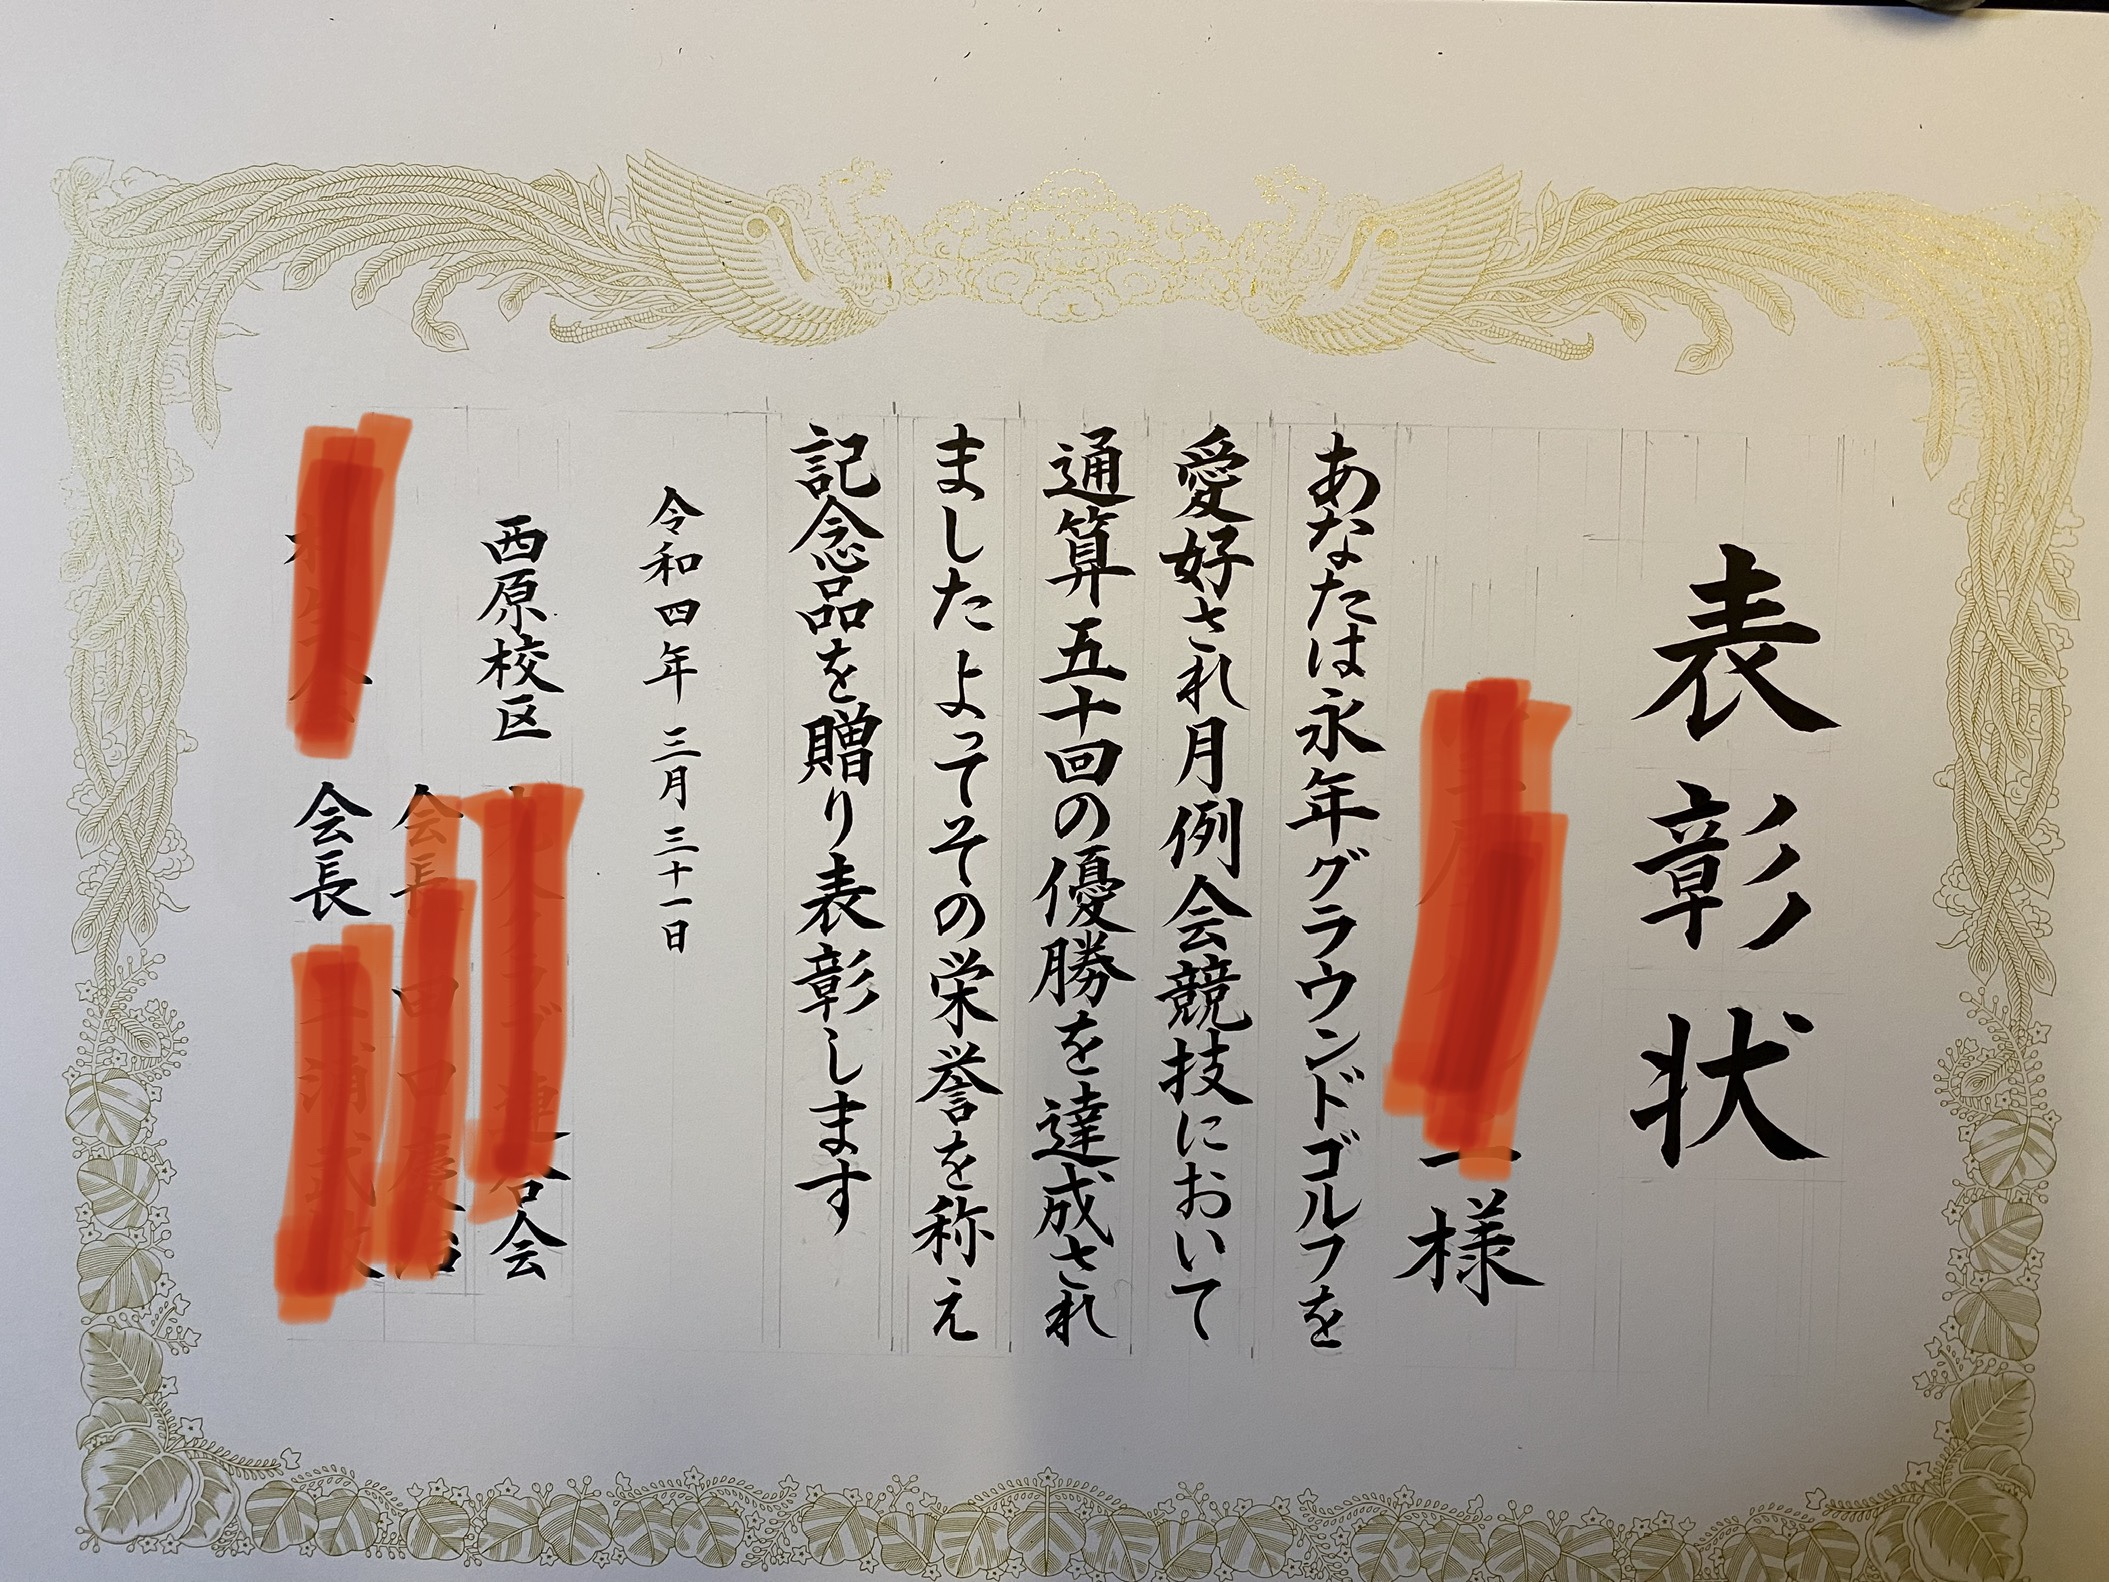 表彰状
様
あなたは永年グラウンドゴルフを
愛好され月例会競技において
通算五十回の優勝を達成され
ましたよってその栄誉を称え
記念品を贈り表彰します
令和四年三月三十一日
西原校区 会
会長
会長